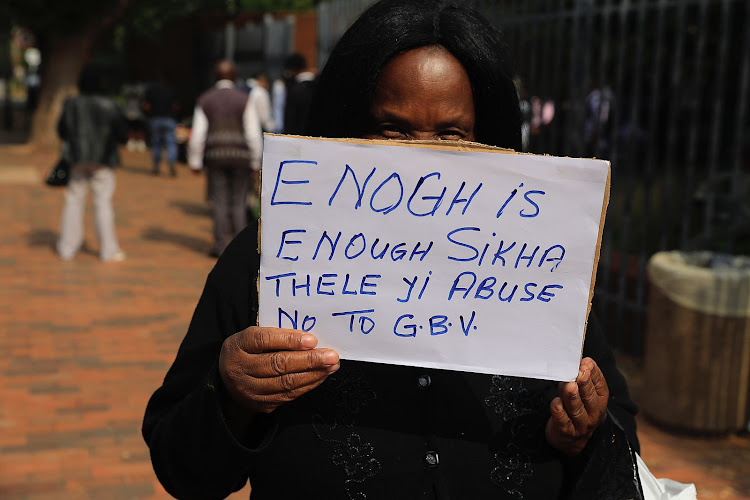 ENOGH is
ENOUGH SIKHA
THELE yi ABUSE
NO TO G.B.V.